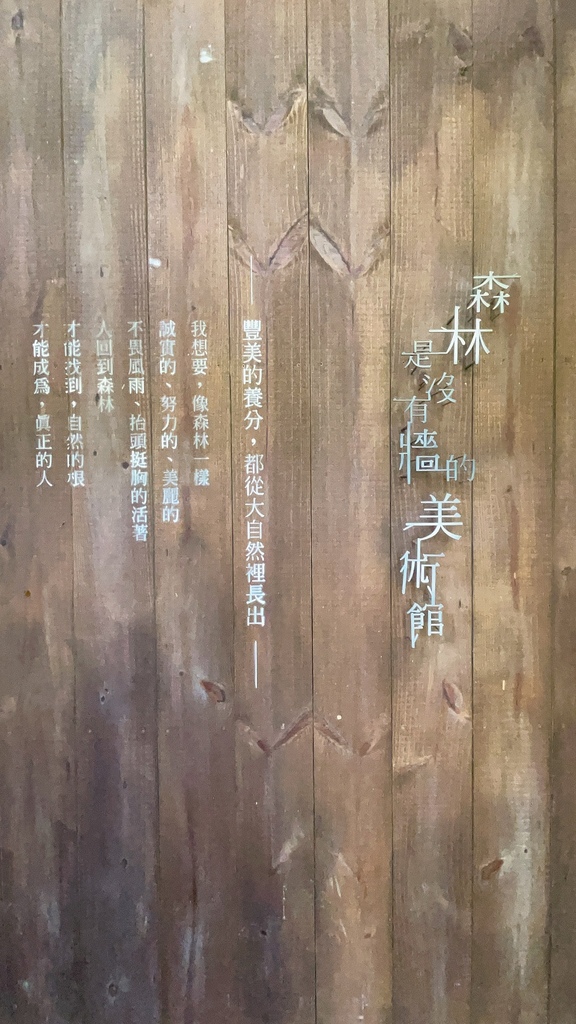 森林是沒有牆的美術館
——豐美的養分，都從大自然裡長出——
我想要，像森林一樣
誠實的、努力的、美麗的
不畏風雨、抬頭挺胸的活著
人回到森林
才能找到，自然的根
才能成為，真正的人